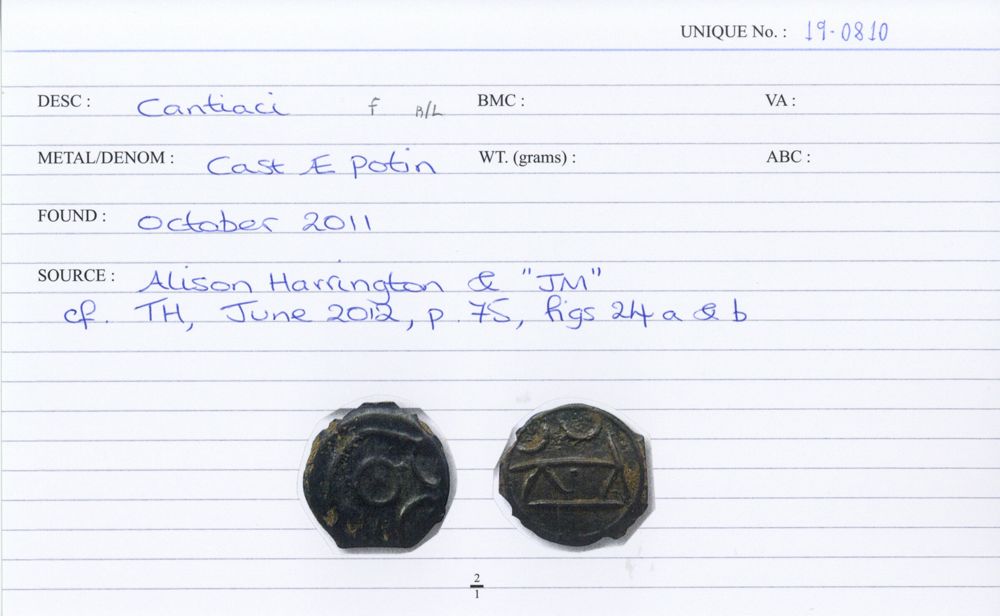 UNIQUE No. : 19-0810
DESC : Cantiaci f B/L BMC : VA :
METAL/DENOM : Cast Æ Potin WT. (grams) : ABC :
FOUND : October 2011
SOURCE : Alison Harrington & "JM"
cf. TH, June 2012, p. 75, figs 24 a & b
2
1